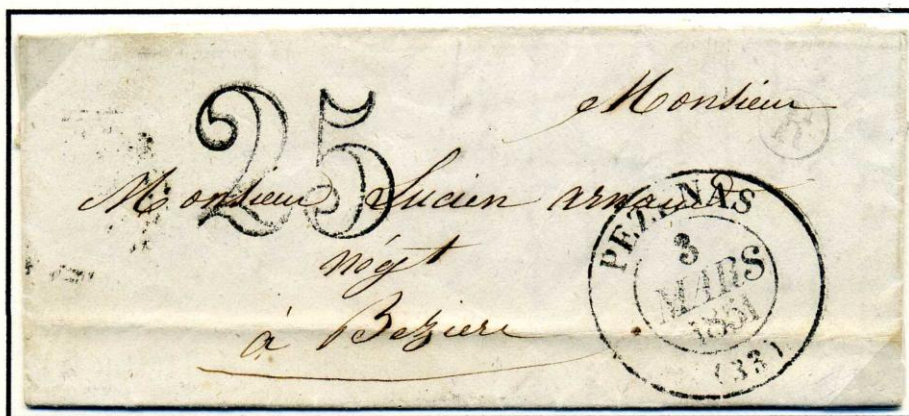 Monsieur
25
R
Monsieur Lucien arnaud
nég.t
à Beziers
PEZENAS
3
MARS
1851
(33)